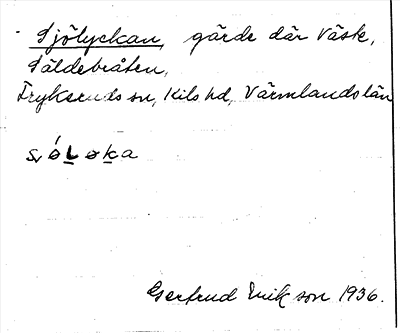 Sjölyckan, gärde där väste,
Säldebråten,
Frykeruds sn, Kils hd, Värmlands län
Gertrud Erikson 1936.